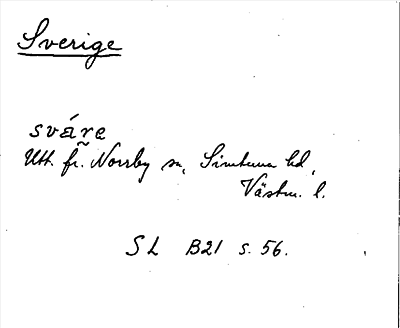 Sverige
sváre
Utt. fr. Norrby sn, Simtuna hd,
Västm. l.
SL B21 s. 56.